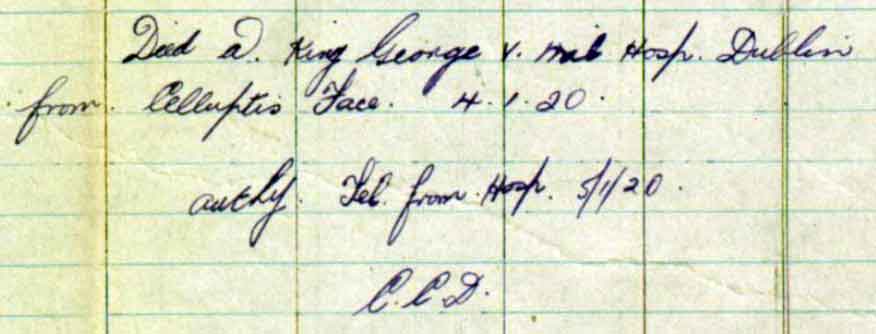 Died at King George V. Mil Hosp. Dublin
from Celluptis Face. 4.1.20.
authy. Tel. from Hosp. 5/1/20.
C.C.D.